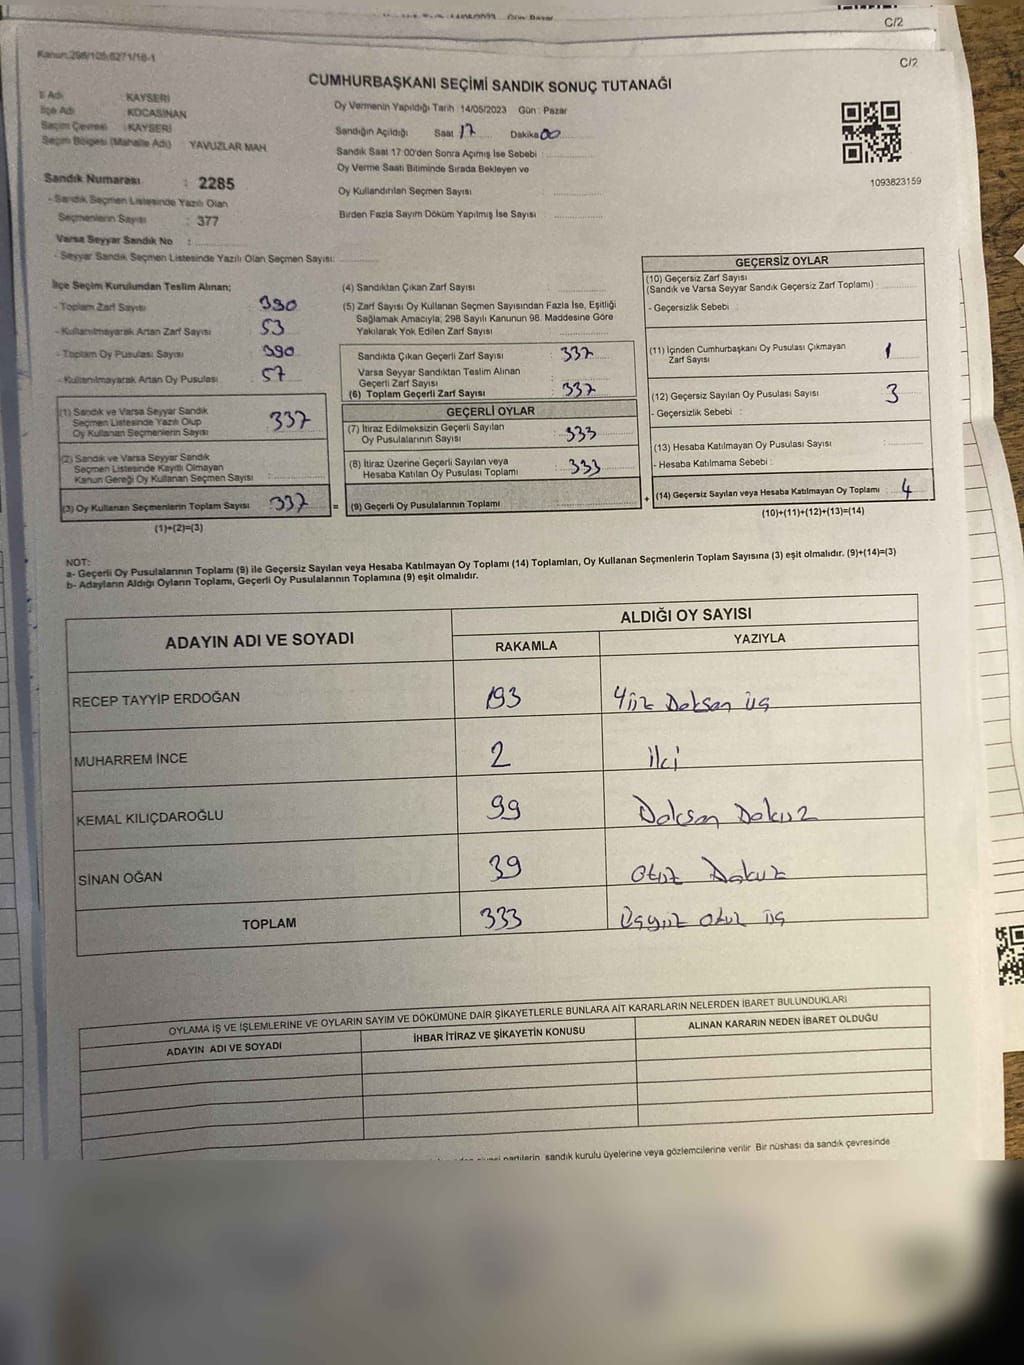 C/2
C/2
Kanun:298/105,6271/18-1
CUMHURBAŞKANI SEÇİMİ SANDIK SONUÇ TUTANAĞI
İl Adı KAYSERİ
İlçe Adı KOCASİNAN
Seçim Çevresi : KAYSERİ
Seçim Bölgesi (Mahalle Adı) : YAVUZLAR MAH
Sandık Numarası : 2285
- Sandık Seçmen Listesinde Yazılı Olan
Seçmenlerin Sayısı : 377
Varsa Seyyar Sandık No :
- Seyyar Sandık Seçmen Listesinde Yazılı Olan Seçmen Sayısı:
Oy Vermenin Yapıldığı Tarih : 14/05/2023 Gün : Pazar
Sandığın Açıldığı Saat 17 Dakika 00
Sandık Saat 17:00'den Sonra Açımış İse Sebebi :
Oy Verme Saati Bitiminde Sırada Bekleyen ve
Oy Kullandırılan Seçmen Sayısı :
Birden Fazla Sayım Döküm Yapılmış İse Sayısı :
1093823159
İlçe Seçim Kurulundan Teslim Alınan;
- Toplam Zarf Sayısı : 390
- Kullanılmayarak Artan Zarf Sayısı : 53
- Toplam Oy Pusulası Sayısı : 390
- Kullanılmayarak Artan Oy Pusulası : 57
(1) Sandık ve Varsa Seyyar Sandık
Seçmen Listesinde Yazılı Olup
Oy Kullanan Seçmenlerin Sayısı : 337
(2) Sandık ve Varsa Seyyar Sandık
Seçmen Listesinde Kayıtlı Olmayan
Kanun Gereği Oy Kullanan Seçmen Sayısı :
(3) Oy Kullanan Seçmenlerin Toplam Sayısı : 337
(1)+(2)=(3)
(4) Sandıktan Çıkan Zarf Sayısı :
(5) Zarf Sayısı Oy Kullanan Seçmen Sayısından Fazla İse, Eşitliği
Sağlamak Amacıyla; 298 Sayılı Kanunun 98. Maddesine Göre
Yakılarak Yok Edilen Zarf Sayısı :
Sandıkta Çıkan Geçerli Zarf Sayısı : 337
Varsa Seyyar Sandıktan Teslim Alınan
Geçerli Zarf Sayısı :
(6) Toplam Geçerli Zarf Sayısı : 337
GEÇERLİ OYLAR
(7) İtiraz Edilmeksizin Geçerli Sayılan
Oy Pusulalarının Sayısı : 333
(8) İtiraz Üzerine Geçerli Sayılan veya
Hesaba Katılan Oy Pusulası Toplamı : 333
= (9) Geçerli Oy Pusulalarının Toplamı
GEÇERSİZ OYLAR
(10) Geçersiz Zarf Sayısı
(Sandık ve Varsa Seyyar Sandık Geçersiz Zarf Toplamı) :
- Geçersizlik Sebebi :
(11) İçinden Cumhurbaşkanı Oy Pusulası Çıkmayan
Zarf Sayısı : 1
(12) Geçersiz Sayılan Oy Pusulası Sayısı : 3
- Geçersizlik Sebebi :
(13) Hesaba Katılmayan Oy Pusulası Sayısı :
- Hesaba Katılmama Sebebi :
+ (14) Geçersiz Sayılan veya Hesaba Katılmayan Oy Toplamı : 4
(10)+(11)+(12)+(13)=(14)
NOT:
a- Geçerli Oy Pusulalarının Toplamı (9) ile Geçersiz Sayılan veya Hesaba Katılmayan Oy Toplamı (14) Toplamları, Oy Kullanan Seçmenlerin Toplam Sayısına (3) eşit olmalıdır. (9)+(14)=(3)
b- Adayların Aldığı Oyların Toplamı, Geçerli Oy Pusulalarının Toplamına (9) eşit olmalıdır.
ADAYIN ADI VE SOYADI
ALDIĞI OY SAYISI
RAKAMLA YAZIYLA
RECEP TAYYİP ERDOĞAN 193 Yüz Doksan üç
MUHARREM İNCE 2 iki
KEMAL KILIÇDAROĞLU 99 Doksan Dokuz
SİNAN OĞAN 39 Otuz Dokuz
TOPLAM 333 Üçyüz otuz üç
OYLAMA İŞ VE İŞLEMLERİNE VE OYLARIN SAYIM VE DÖKÜMÜNE DAİR ŞİKAYETLERLE BUNLARA AİT KARARLARIN NELERDEN İBARET BULUNDUKLARI
ADAYIN ADI VE SOYADI İHBAR İTİRAZ VE ŞİKAYETİN KONUSU ALINAN KARARIN NEDEN İBARET OLDUĞU
partilerin, sandık kurulu üyelerine veya gözlemcilerine verilir. Bir nüshası da sandık çevresinde